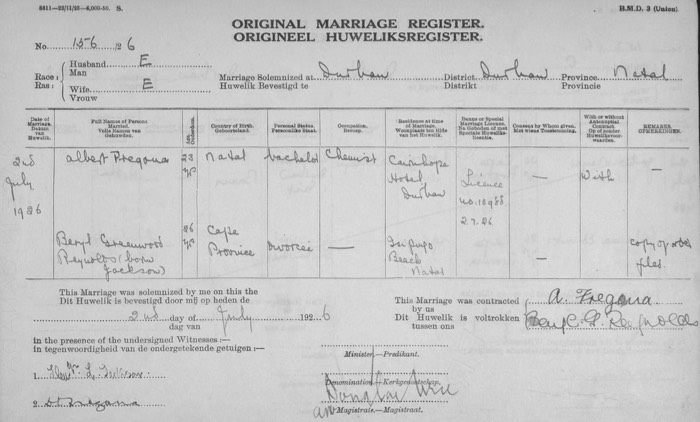 6811—23/11/25—6,000-50. S.
B.M.D. 3 (Union).
ORIGINAL MARRIAGE REGISTER.
ORIGINEEL HUWELIKSREGISTER.
No. 156/26
Race: Husband E
Ras: Man
Wife E
Vrouw
Marriage Solemnized at Durban District Durban Province Natal
Huwelik Bevestigd te Distrikt Provincie
Date of Marriage. Datum van Huwelik.
Full Names of Persons Married. Volle Namen van Gehuwden.
Country of Birth. Geboorteland.
Personal Status. Persoonlike Staat.
Occupation. Beroep.
Residence at time of Marriage. Woonplaats ten tijde van het Huwelik.
Banns or Special Marriage Licence. Na Geboden of met Speciale Huwelikslisentie.
Consent by Whom given. Met wiens Toestemming.
With or without Antenuptial Contract. Op of zonder Huweliksvoorwaarden.
REMARKS. OPMERKINGEN.
2nd July 1926
Albert Fregona 23 Natal bachelor Chemist
Hotel Durban
Licence No. 10988 2.7.26
— With —
Beryl Greenwood Reynolds (born Jackson) 26 Cape Province Divorcée —
Beach Natal
—
copy of order filed.
This Marriage was solemnized by me on this the
Dit Huwelik is bevestigd door mij op heden de
2nd day of July 1926
dag van
In the presence of the undersigned Witnesses :—
In tegenwoordigheid van de ondergetekende getuigen :—
1.
2. Fregona
This Marriage was contracted by us A. Fregona
Dit Huwelik is voltrokken tussen ons Beryl G. Reynolds
Minister—Predikant.
Denomination—Kerkgenootschap.
Magistrate—Magistraat.